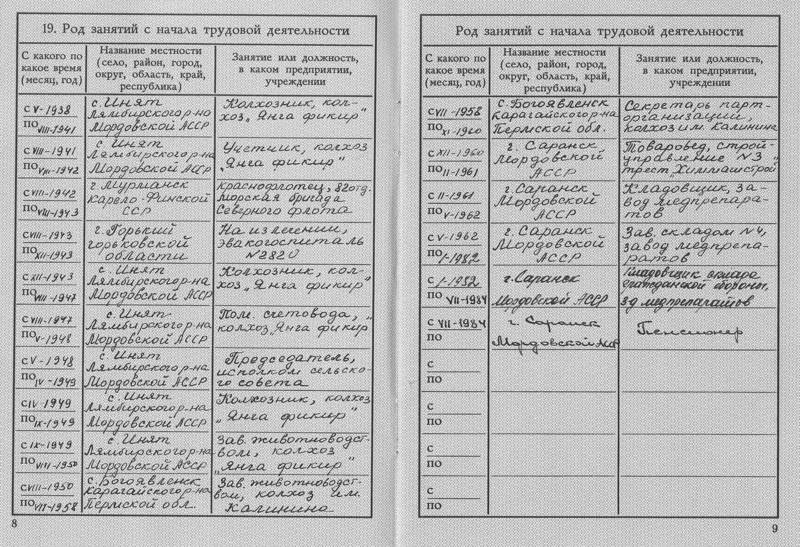 19. Род занятий с начала трудовой деятельности
С какого по какое время (месяц, год)
Название местности (село, район, город, округ, область, край, республика)
Занятие или должность, в каком предприятии, учреждении
с V-1938
по VIII-1941
с. Инят
Лямбирского р-на
Мордовской АССР
Колхозник, кол-
хоз „Янга фикир"
с VIII-1941
по VIII-1942
с. Инят
Лямбирского р-на
Мордовской АССР
Учетчик, колхоз
„Янга фикир"
с VIII-1942
по VIII-1943
г. Мурманск
Карело-Финской
ССР
Краснофлотец, 82 отд.
морская бригада
Северного флота
с VIII-1943
по XII-1943
г. Горький
Горьковской
области
На излечении,
эвакогоспиталь
№2820
с XII-1943
по VIII-1947
с. Инят
Лямбирского р-на
Мордовской АССР
Колхозник, кол-
хоз „Янга фикир"
с VIII-1947
по V-1948
с. Инят
Лямбирского р-на
Мордовской АССР
Пом. счетовода, „
колхоз Янга фикир
с V-1948
по IV-1949
с. Инят
Лямбирского р-на
Мордовской АССР
Председатель,
исполком сельско-
го совета
с IV-1949
по IX-1949
с. Инят
Лямбирского р-на
Мордовской АССР
Колхозник, колхоз
„Янга фикир"
с IX-1949
по VIII-1950
с. Инят
Лямбирского р-на
Мордовской АССР
Зав. животноводст-
вом, колхоз
„Янга фикир"
с VIII-1950
по VII-1958
с. Богоявленск
Карагайского р-на
Пермской обл.
Зав. животноводст-
вом, колхоз им.
Калинина
8
Род занятий с начала трудовой деятельности
С какого по какое время (месяц, год)
Название местности (село, район, город, округ, область, край, республика)
Занятие или должность, в каком предприятии, учреждении
с VII-1958
по XI-1960
с. Богоявленск
Карагайского р-на
Пермской обл.
Секретарь парт-
организации,
колхоз им. Калинин
с XII-1960
по II-1961
г. Саранск
Мордовской
АССР
Товаровед, строй-
управление №3 „
трест Химмашстрой
с II-1961
по V-1962
г. Саранск
Мордовской
АССР
Кладовщик, за-
вод медпрепара-
тов
с V-1962
по I-1982
г. Саранск
Мордовской
АССР
Зав. складом №4,
завод медпрепа-
ратов
с I-1952
по VII-1984
г. Саранск
Мордовской АССР
Кладовщик склада
гражданской обороны,
з-д медпрепаратов
с VII-1984
по
г. Саранск
Мордовской АССР
Пенсионер
с
по
с
по
с
по
с
по
9